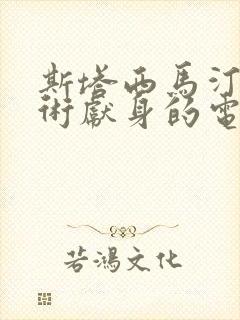 斯塔西馬汀
術獻身的電
若鴻文化